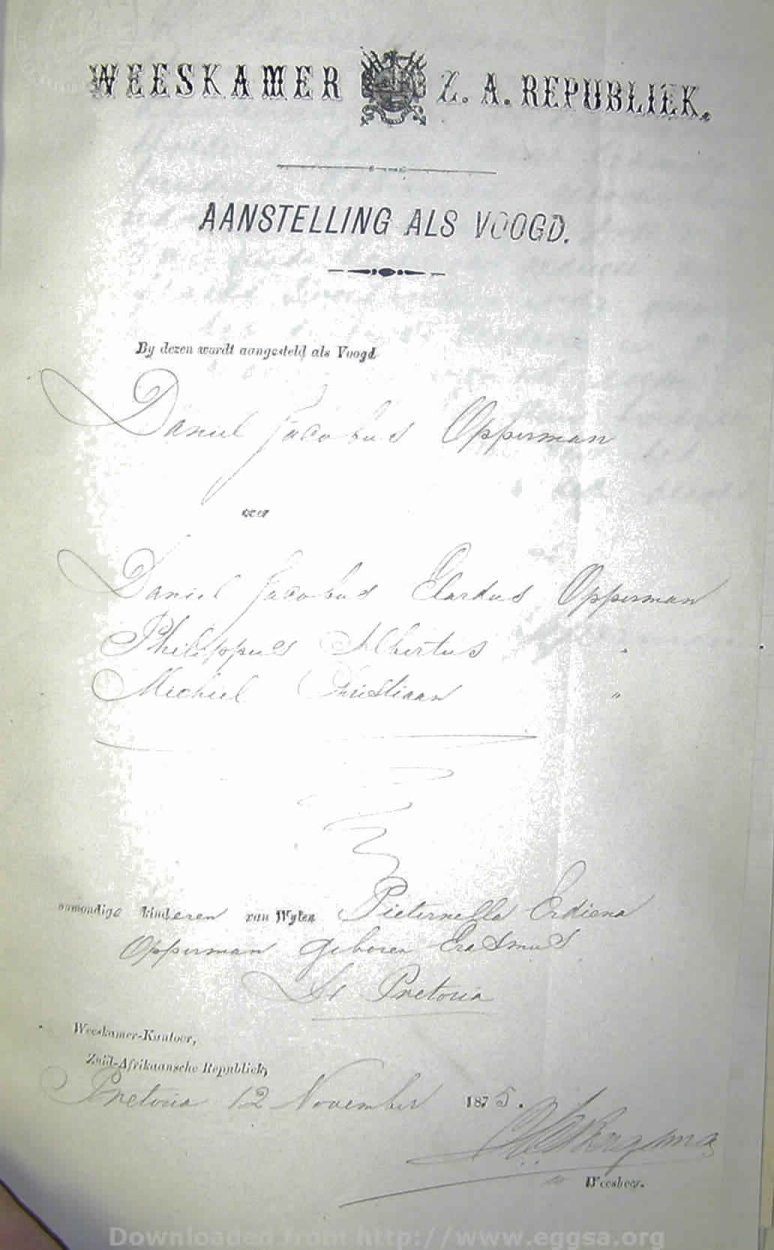 WEESKAMER Z. A. REPUBLIEK.
AANSTELLING ALS VOOGD.
By dezen wordt aangesteld als Voogd
Daniel Jacobus Opperman
over
Daniel Jacobus Elardus Opperman
Philippus Albertus "
Michiel Christiaan "
onmondige kinderen van Wylen Pieternella Erdiena
Opperman geboren Erasmus
te Pretoria
Weeskamer-Kantoor,
Zuid-Afrikaansche Republiek,
Pretoria 12 November 1875.
Weesheer.
Downloaded from http://www.eggsa.org